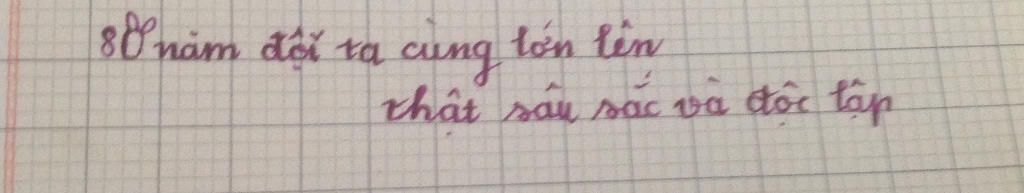 80 năm đội ta cùng lớn lên
thật sâu sắc và độc lập